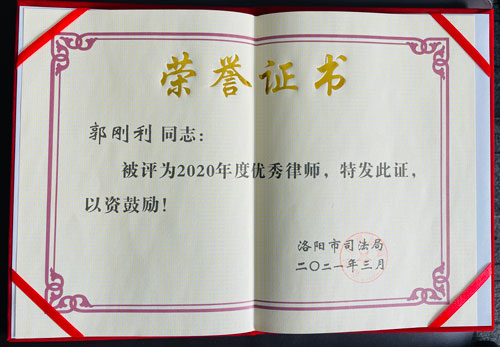 荣誉证书
郭刚利同志：
被评为2020年度优秀律师，特发此证，
以资鼓励！
洛阳市司法局
二〇二一年三月